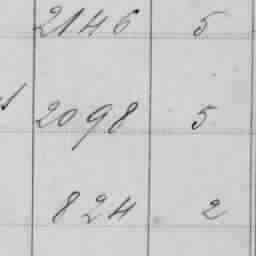 2146 5
2098 5
824 2